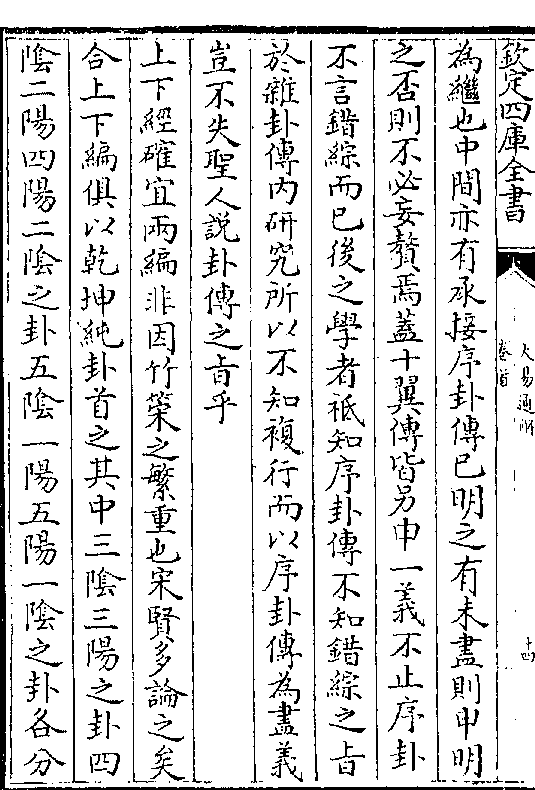 欽定四庫全書
大易通解
卷首
十四
為繼也中間亦有承接序卦傳已明之有未盡則申明
之否則不必妄贅焉蓋十翼傳皆另申一義不止序卦
不言錯綜而已後之學者祇知序卦傳不知錯綜之旨
於雜卦傳內研究所以不知複行而以序卦傳為盡義
豈不失聖人說卦傳之旨乎
上下經確宜兩編非因竹策之繁重也宋賢多論之矣
合上下編俱以乾坤純卦首之其中三陰三陽之卦四
陰二陽四陽二陰之卦五陰一陽五陽一陰之卦各分